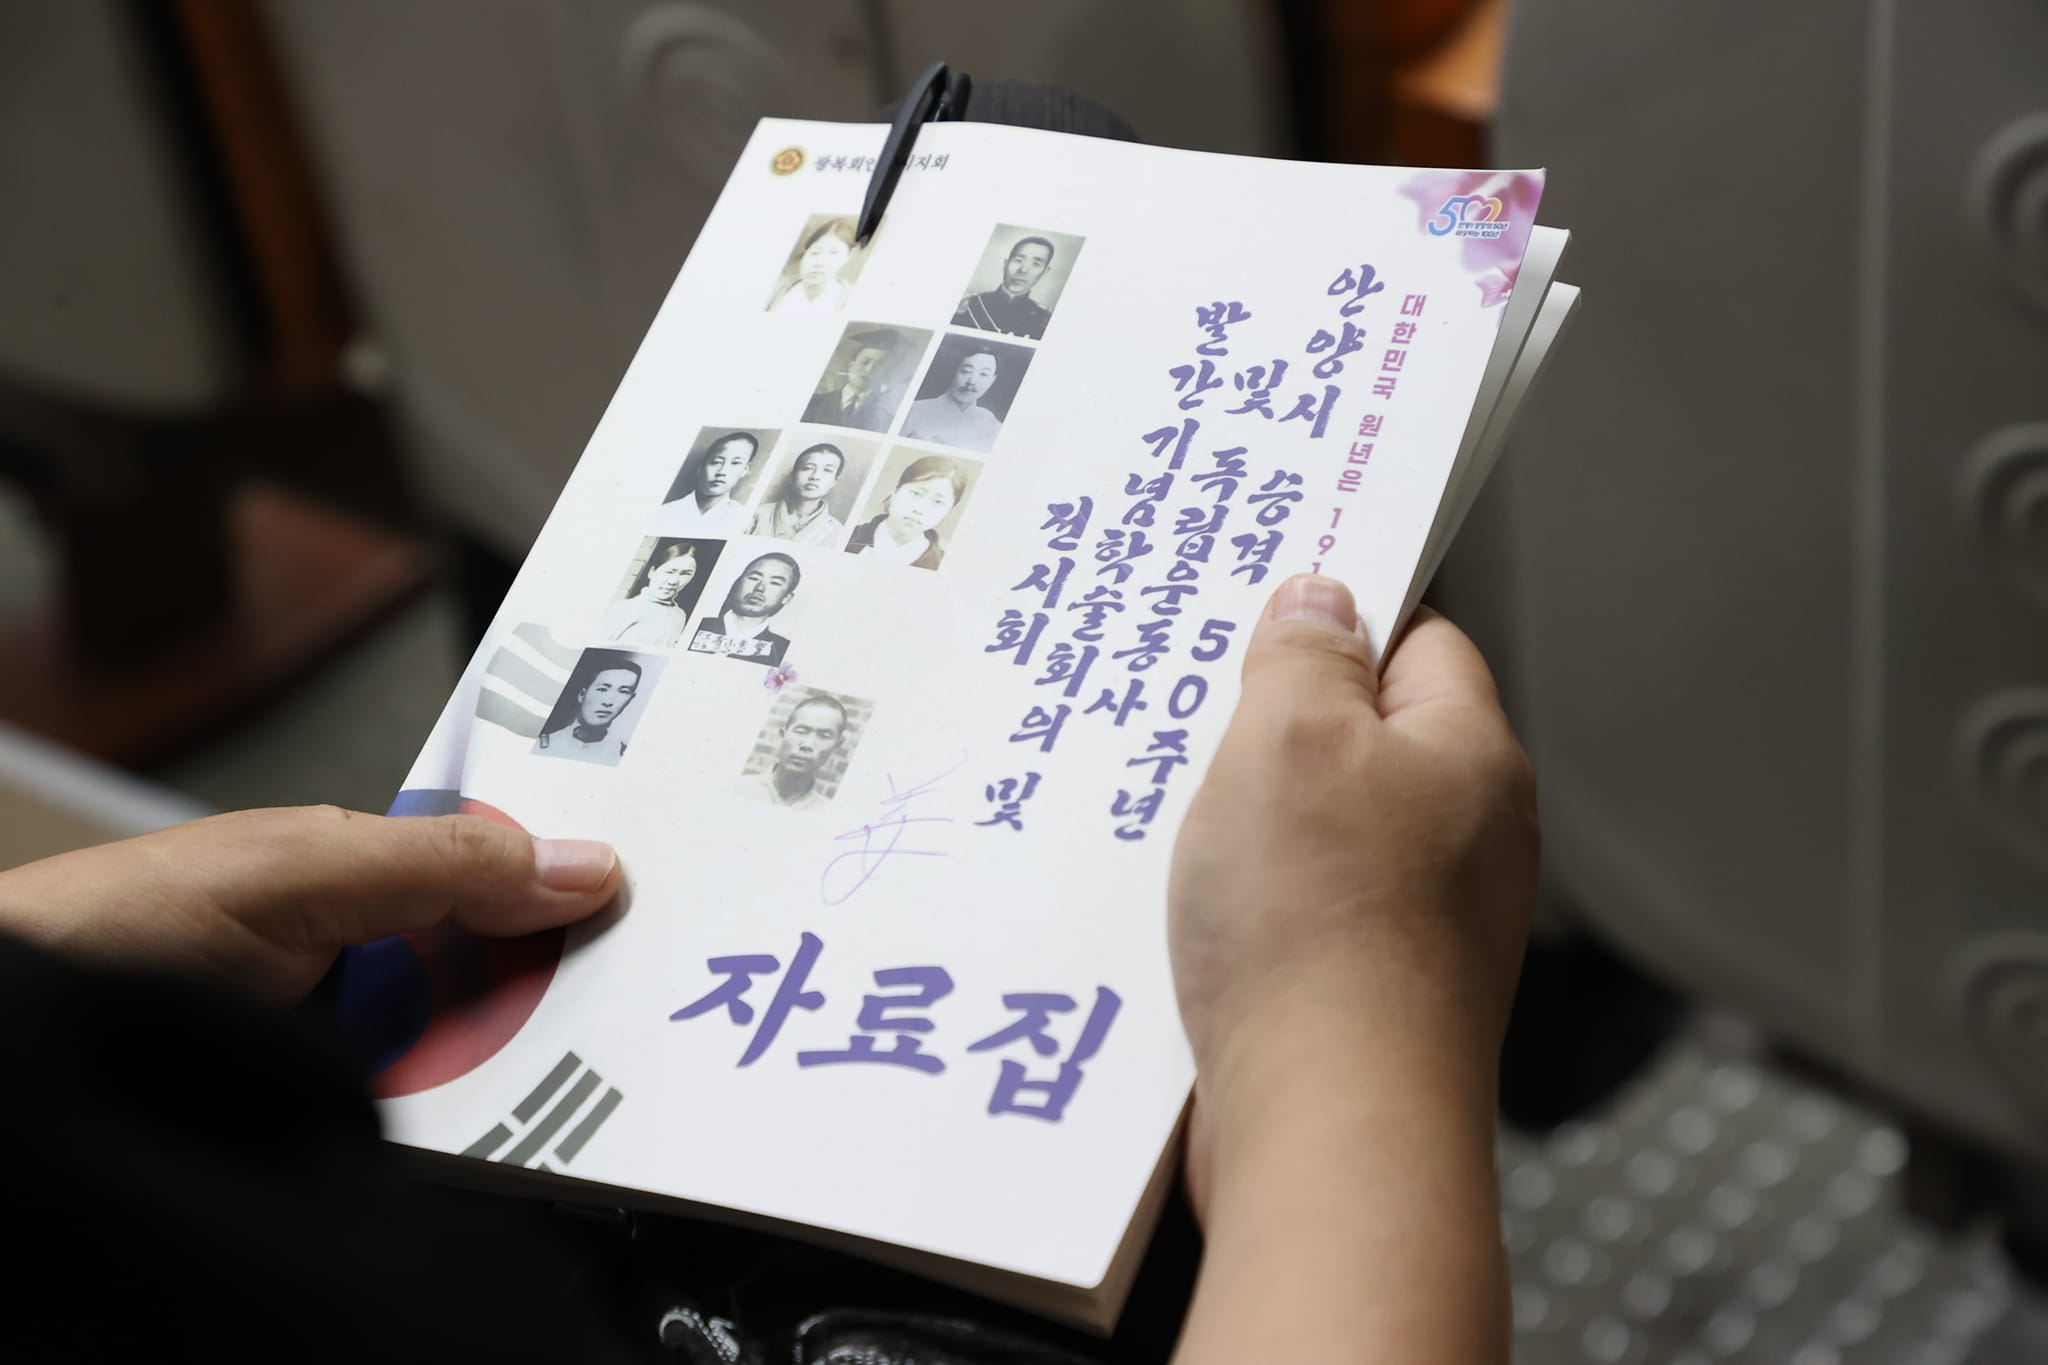 광복회안
시지회
50
안양시 승격 50년
대한민국 원년은 1 9 1
안양시 승격 50주년
및 독립운동사
발간기념학술회의 및
전시회
자료집